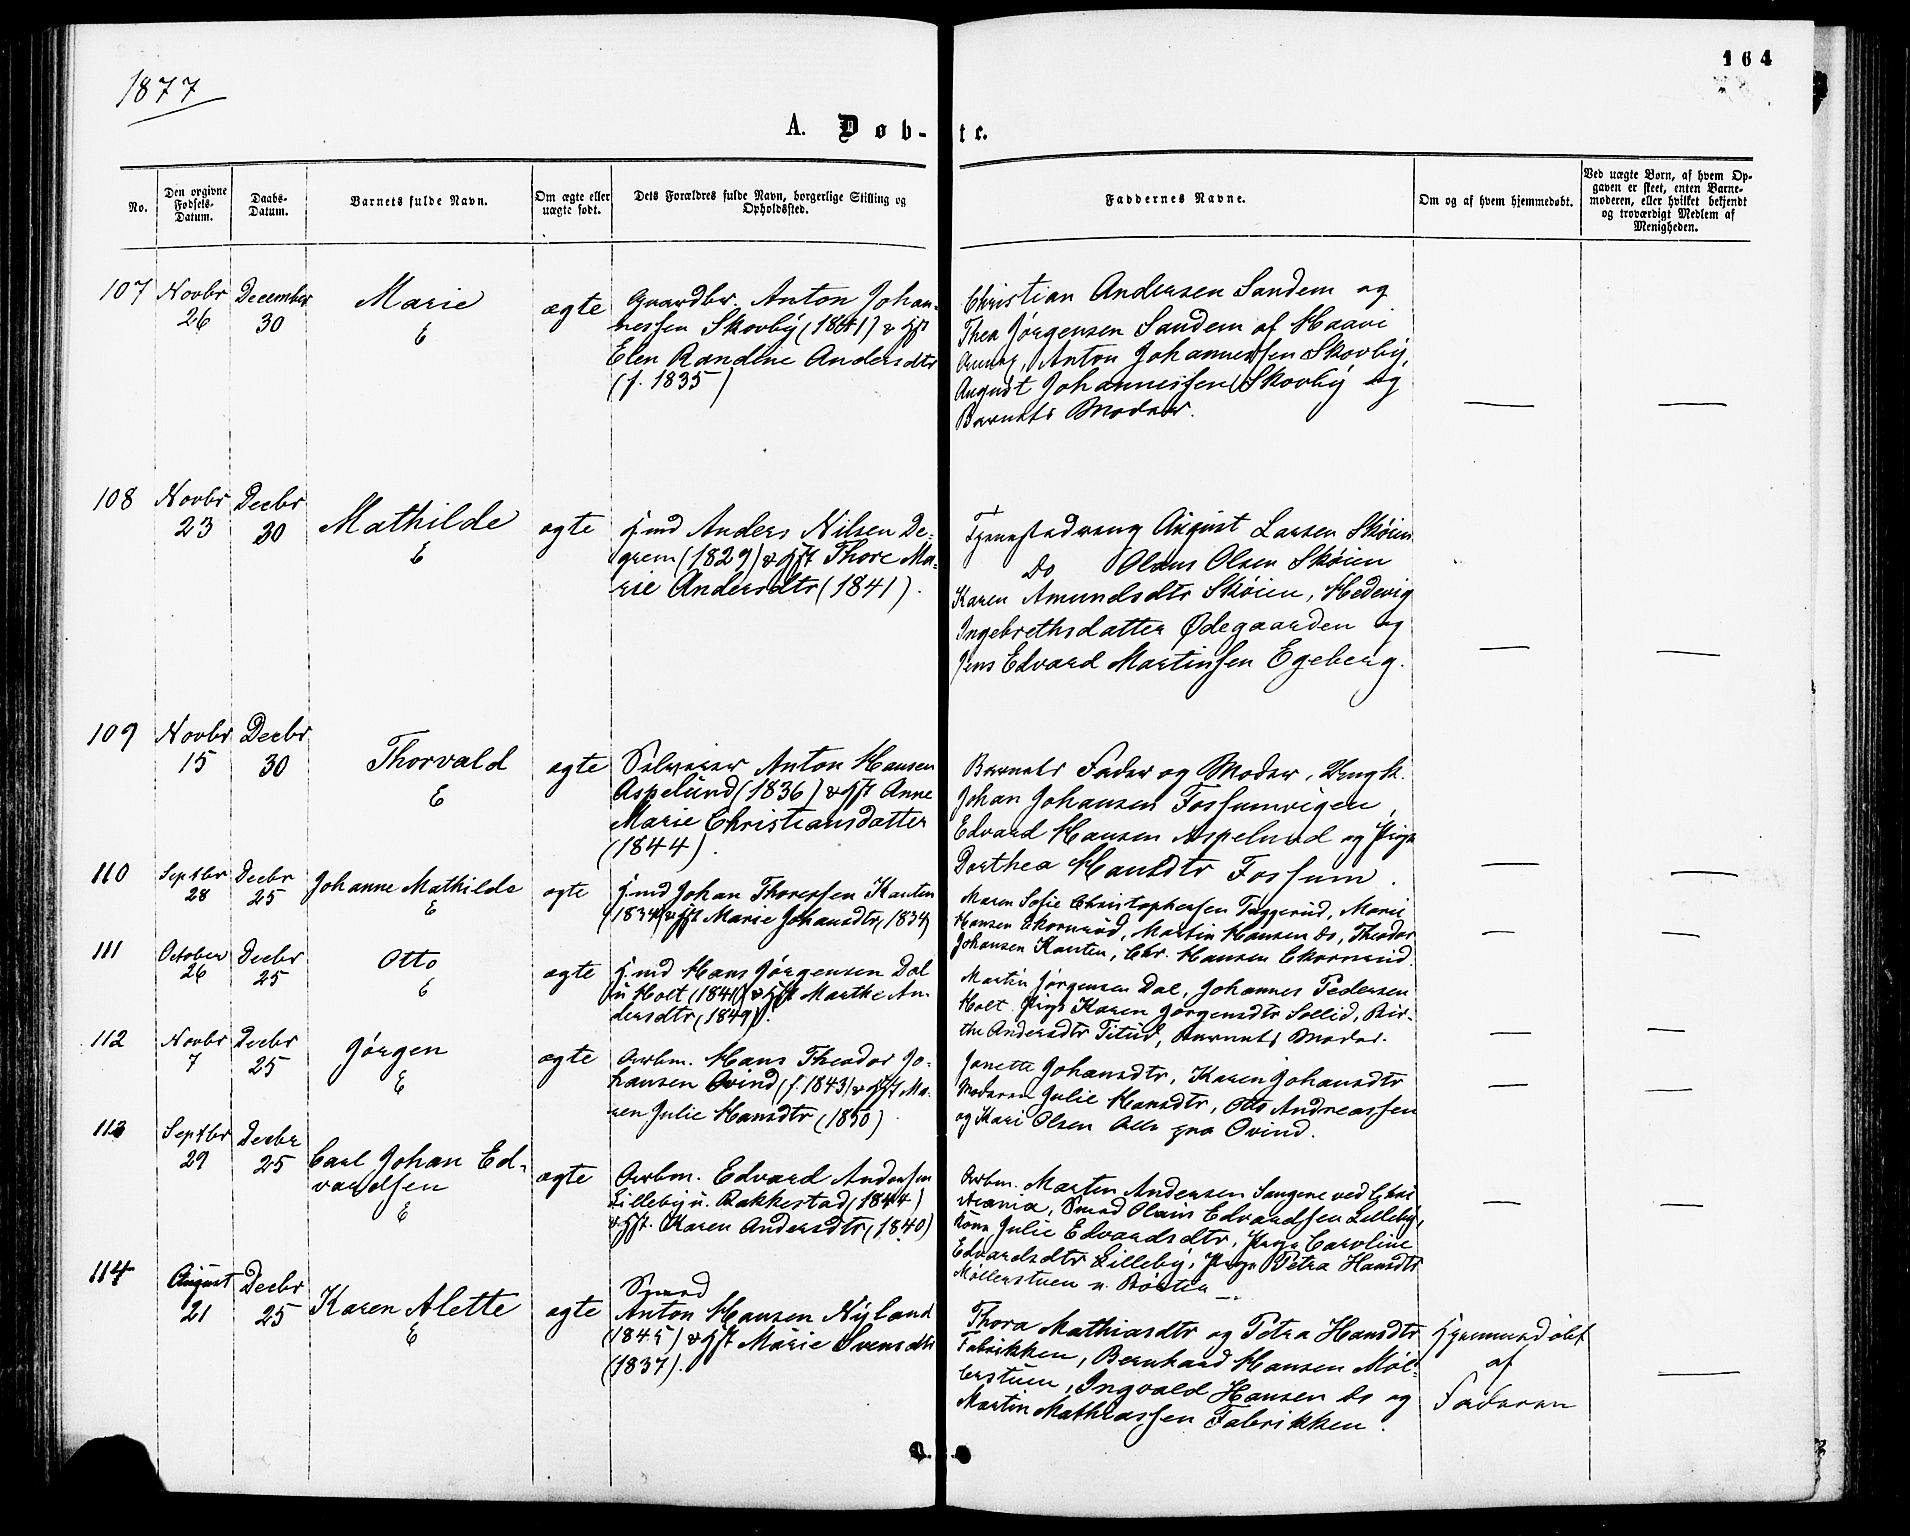 1877
164
A. Døb-
te.
No.
Den opgivne Fødsels-Datum.
Daabs-Datum.
Barnets fulde Navn.
Om ægte eller uægte født.
Dets Forældres fulde Navn, borgerlige Stilling og Opholdssted.
Faddernes Navne.
Om og af hvem hjemmedøbt.
Ved uægte Børn, af hvem Op-
gaven er skeet, enten Barne-
moderen, eller hvilket bekjendt
og troværdigt Medlem af
Menigheden.
107 Novbr 26 December 30 Marie E ægte
Gaardbr. Anton Johan-
nessen Skovby (1841) & Hst
Elen Randine Andersdtr
(f. 1835)
Christian Andersen Sandem og
Thea Jørgensen Sandem af Haavi
Anton Johannessen Skovby,
August Johannessen Skovby og
Barnets Moder.
— —
108 Novbr 23 Decbr 30 Mathilde E ægte
Hmd Anders Nilsen De-
grem (1829) & Hst Thore Ma-
rie Andersdtr (1841).
Tjenestedreng August Larsen Skøien
Do Olaus Olsen Skøien
Karen Amundsdtr Skøien, Hedevig
Ingebrethsdatter Ødegaarden og
Jens Edvard Martinsen Egeberg.
— —
109 Novbr 15 Decbr 30 Thorvald E ægte
Selveier Anton Hansen
Aspelund (1836) & Hst Anne
Marie Christiansdatter
(1844).
Barnets Fader og Moder, Ungk.
Johan Johansen Fossumvigen,
Edvard Hansen Aspelund og Pige
Dorthea Hansdtr Fossum.
— —
110 Septbr 28 Decbr 25 Johanne Mathilde E ægte
Hmd Johan Thoressen Kanten
(1834) & Hst Marie Johansdtr (1834)
Maren Sofie Christophersen Taggerud, Marie
Hansen Ekornrud, Martin Hansen do, Theodor
Johansen Kanten, Chr. Hansen Ekornrud.
— —
111 October 26 Decbr 25 Otto E ægte
Hmd Hans Jørgensen Dal
u Holt (1841) & Hst Marthe An-
dersdtr (1849).
Martin Jørgensen Dal, Johannes Pedersen
Holt, Pige Karen Jørgensdtr Sollid, Bir-
the Andersdtr Titud, Barnets Moder.
— —
112 Novbr 7 Decbr 25 Jørgen E ægte
Arbm. Hans Theodor Jo-
hansen Ovind (f. 1843) & Hst Ma-
ren Julie Hansdtr (1850).
Janette Johansdtr, Karen Johansdtr
Moderen Julie Hansdtr, Otto Andreassen
og Kari Olsen Alle paa Ovind.
— —
113 Septbr 29 Decbr 25 Carl Johan Ed-
vardsen E ægte
Arbm. Edvard Andersen
Lilleby u. Rakkestad (1844)
& Hst. Karen Andersdtr (1840)
Arbm. Martin Andersen Saugene ved Chri
stiania, Smed Olavis Edvardsen Lilleby,
Kone Julie Edvardsdtr, Pige Caroline
Edvardsdtr Lilleby, Pige Petra Hansdtr
Møllerstuen u.
— —
114 August 21 Decbr 25 Karen Alette E ægte
Smed
Anton Hansen Nyland
(1845) & Hst Marie Svensdtr
(1837).
Thora Mathiasdtr og Petra Hansdtr
Fabrikken, Bernhard Hansen Møl-
lerstuen, Ingvald Hansen do og
Martin Mathiassen Fabrikken.
Hjemmedøbt
af
Faderen
—